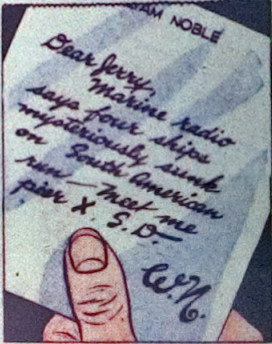 AM NOBLE
Dear Jerry,
Marine radio
says four ships
mysteriously sunk
on South American
run — Meet me
pier X. S.D.
W.N.